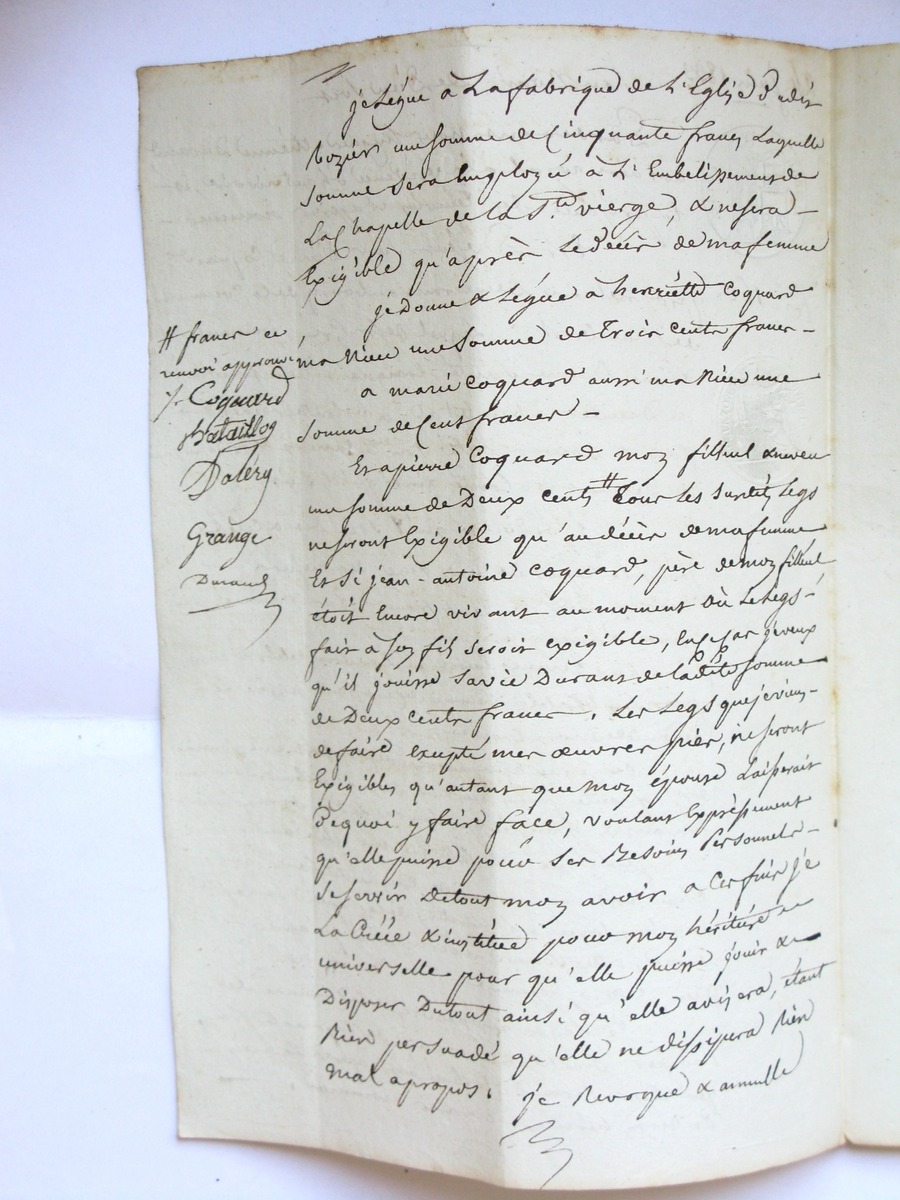 je Légue à La fabrique de L'Eglise dudit
bozier une somme de Cinquante francs Laquelle
somme sera Employée à L'Embelissement de
La Chapelle de la Ste vierge, & ne sera
Exigible qu'après Le décès de ma femme
je Donne & Légue à henriette Coquard
ma Niece une Somme de Trois Cents francs
a marie Coquard aussi ma Niece une
somme de Cent francs
Et a pierre Coquard mon filleul & neveu
une somme de Deux Cents # Tous les susdits Legs
ne seront Exigible qu'au décès de ma femme
Et Si jean-antoine Coquard, père de mon filleul
étoit Encore vivant au moment où Le Legs
fait à son fils seroit exigible, En ce Cas je veux
qu'il jouisse sa vie Durant de la dite Somme
de Deux Cents francs. Les Legs que je viens
de faire excepté mes œuvres pies, ne seront
Exigibles qu'autant que mon épouse Laisserait
De quoi y faire face, voulant Expressement
qu'elle puisse pour Ses Besoins Personnels
se servir de tout mon avoir a Ces fins je
La Créée & institue pour mon héritière
universelle pour qu'elle puisse jouir &
Disposer Du tout ainsi qu'elle avisera, étant
Bien persuadé qu'elle ne dissipera Rien
mal apropos. je Revoque & annulle
# francs ce
renvoi approuvé
Coquard
Bataillon
Daléry
Grange
Durand